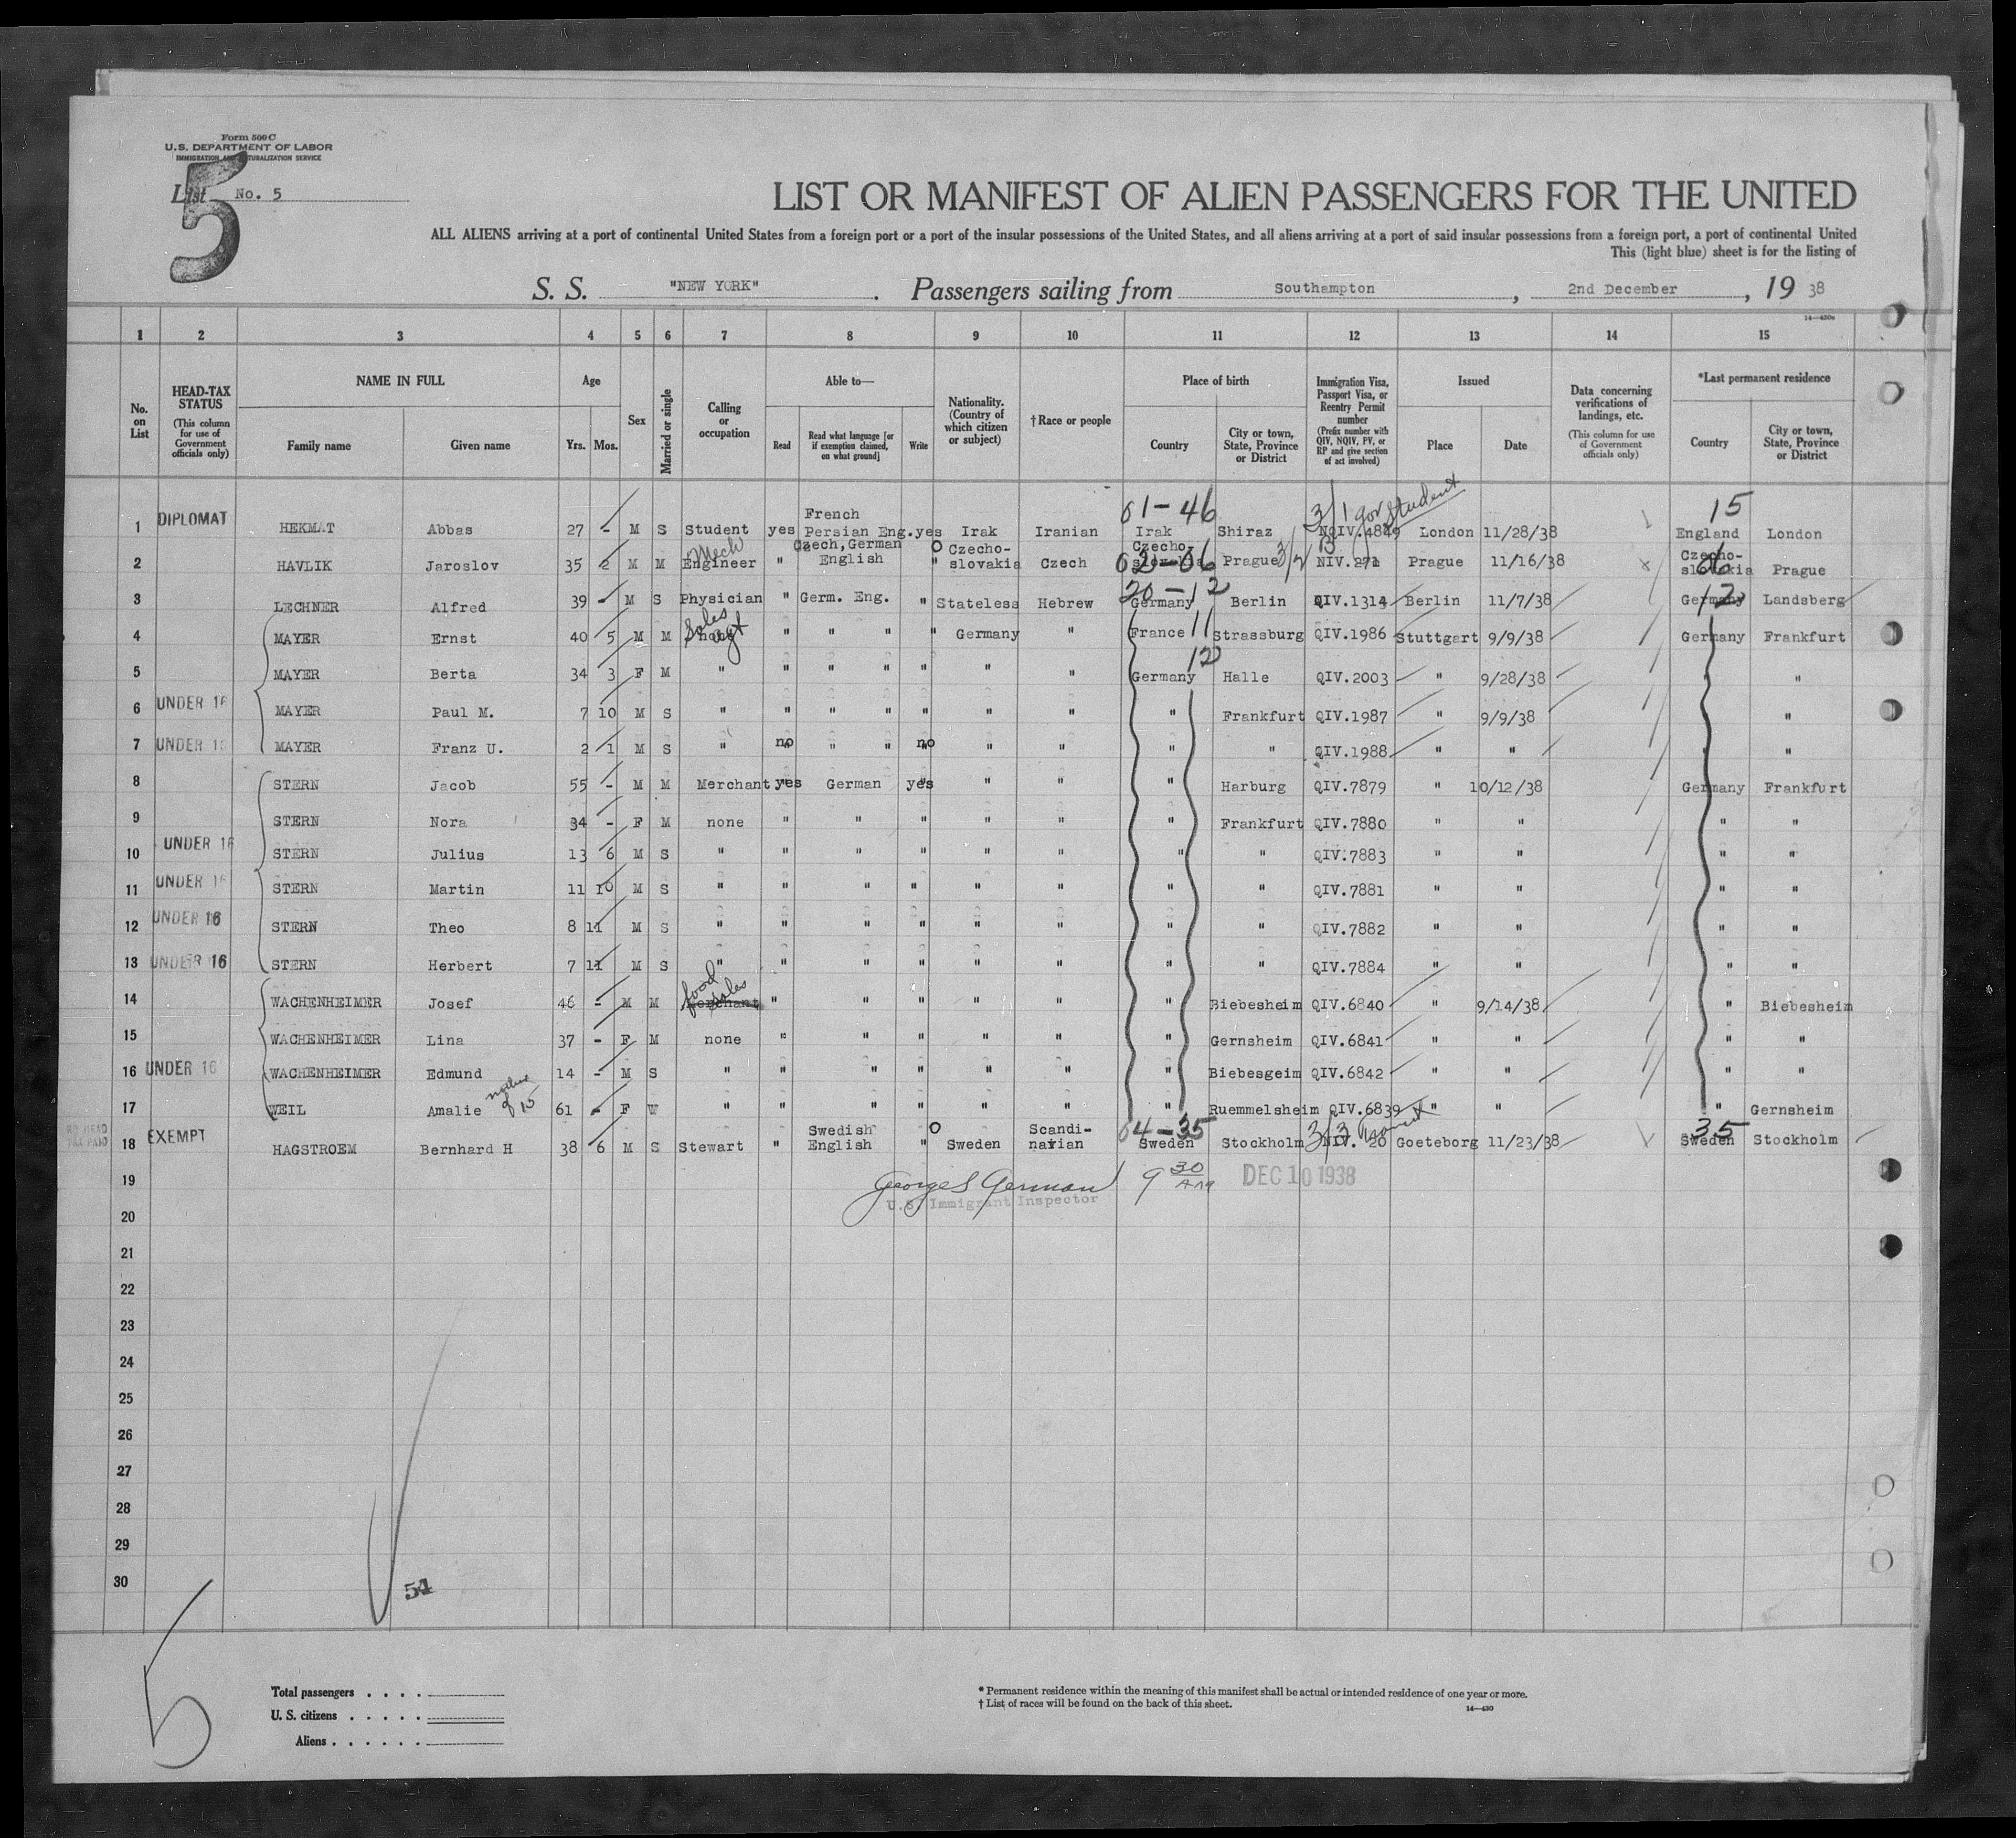 Form 500 C
U.S. DEPARTMENT OF LABOR
IMMIGRATION AND NATURALIZATION SERVICE
5
List No. 5
LIST OR MANIFEST OF ALIEN PASSENGERS FOR THE UNITED
ALL ALIENS arriving at a port of continental United States from a foreign port or a port of the insular possessions of the United States, and all aliens arriving at a port of said insular possessions from a foreign port, a port of continental United
This (light blue) sheet is for the listing of
S. S. "NEW YORK". Passengers sailing from Southampton, 2nd December, 19 38
14—430a
1 2 3 4 5 6 7 8 9 10 11 12 13 14 15
No. on List
HEAD-TAX STATUS (This column for use of Government officials only)
NAME IN FULL Family name Given name
Age Yrs. Mos.
Sex
Married or single
Calling or occupation
Able to— Read Read what language [or if exemption claimed, on what ground] Write
Nationality. (Country of which citizen or subject)
† Race or people
Place of birth Country City or town, State, Province or District
Immigration Visa, Passport Visa, or Reentry Permit number (Prefix number with QIV, NQIV, PV, or RP and give section of act involved)
Issued Place Date
Data concerning verifications of landings, etc. (This column for use of Government officials only)
*Last permanent residence Country City or town, State, Province or District
61-46 3/1 gov student 15
1 DIPLOMAT HEKMAT Abbas 27 - M S Student yes French Persian Eng. yes Irak Iranian Irak Shiraz NQIV.4849 London 11/28/38 England London
2 HAVLIK Jaroslov 35 2 M M Mech Engineer " Czech, German English " Czecho-slovakia Czech Czecho-slovakia 02-06 Prague 3/2 B NIV.271 Prague 11/16/38 Czecho-slovakia 06 Prague
3 LECHNER Alfred 39 - M S Physician " Germ. Eng. " Stateless Hebrew Germany 20-12 Berlin QIV.1314 Berlin 11/7/38 Germany 12 Landsberg
4 MAYER Ernst 40 5 M M Sales agt " " " " Germany " France 11 Strassburg QIV.1986 Stuttgart 9/9/38 Germany Frankfurt
5 MAYER Berta 34 3 F M " " " " " " " Germany 12 Halle QIV.2003 " 9/28/38 "
6 UNDER 16 MAYER Paul M. 7 10 M S " " " " " " " " Frankfurt QIV.1987 " 9/9/38 "
7 UNDER 16 MAYER Franz U. 2 1 M S " no " " no " " " " QIV.1988 " " " "
8 STERN Jacob 55 - M M Merchant yes German yes " " " Harburg QIV.7879 " 10/12/38 Germany Frankfurt
9 STERN Nora 34 - F M none " " " " " " Frankfurt QIV.7880 " " " "
10 UNDER 16 STERN Julius 13 6 M S " " " " " " " " QIV.7883 " " " "
11 UNDER 16 STERN Martin 11 10 M S " " " " " " " " QIV.7881 " " " "
12 UNDER 16 STERN Theo 8 11 M S " " " " " " " " QIV.7882 " " " "
13 UNDER 16 STERN Herbert 7 11 M S " " " " " " " " QIV.7884 " " " "
14 WACHENHEIMER Josef 46 - M M food sales Merchant " " " " " " Biebesheim QIV.6840 " 9/14/38 " Biebesheim
15 WACHENHEIMER Lina 37 - F M none " " " " " " Gernsheim QIV.6841 " " " "
16 UNDER 16 WACHENHEIMER Edmund 14 - M S " " " " " " " Biebesgeim QIV.6842 " " " "
17 WEIL Amalie mother of 15 61 - F W " " " " " " " Ruemmelsheim QIV.6839 " " " Gernsheim
NO HEAD TAX PAID
18 EXEMPT HAGSTROEM Bernhard H 38 6 M S Stewart " Swedish English " Sweden Scandi-navian Sweden 04-35 Stockholm 3/3 NIV. 20 Goeteborg 11/23/38 Sweden 35 Stockholm
19 George S German 9 30 AM DEC 10 1938
U.S. Immigrant Inspector
20
21
22
23
24
25
26
27
28
29
30
54
5
Total passengers . . . .
U. S. citizens . . . . .
Aliens . . . . . .
* Permanent residence within the meaning of this manifest shall be actual or intended residence of one year or more.
† List of races will be found on the back of this sheet.
14—430